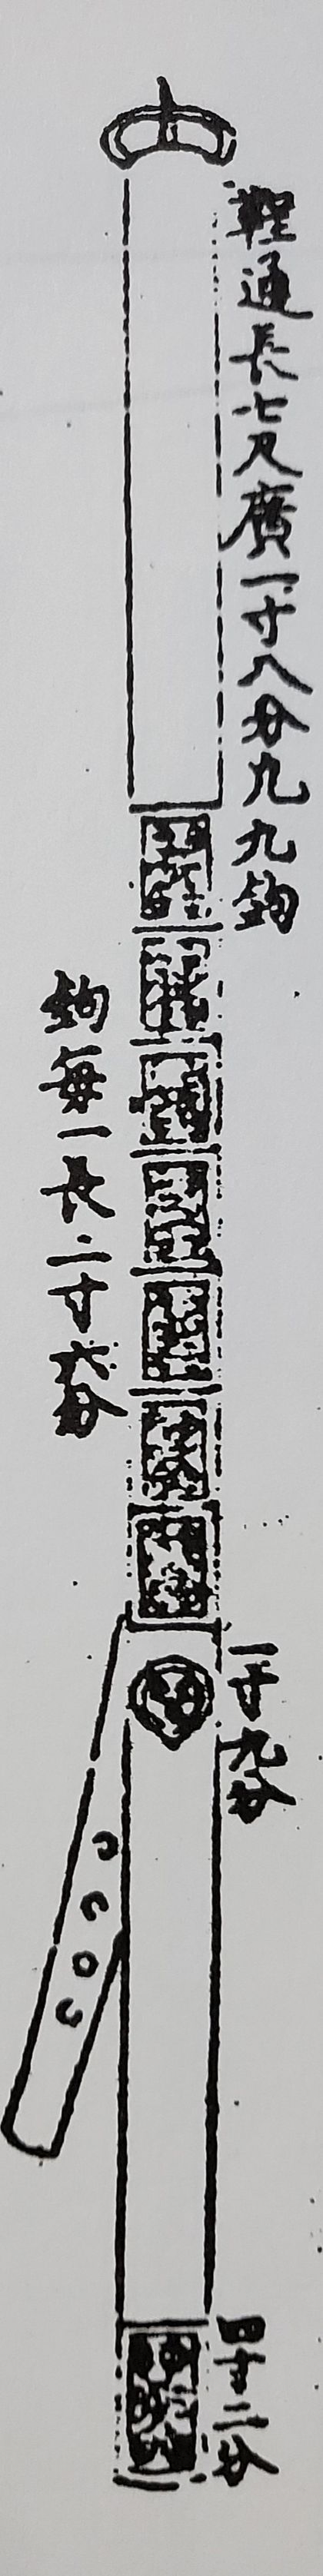 鞓通長七尺廣一寸八分九九鉤
鉤每一長二寸六分
一寸九分
四寸二分